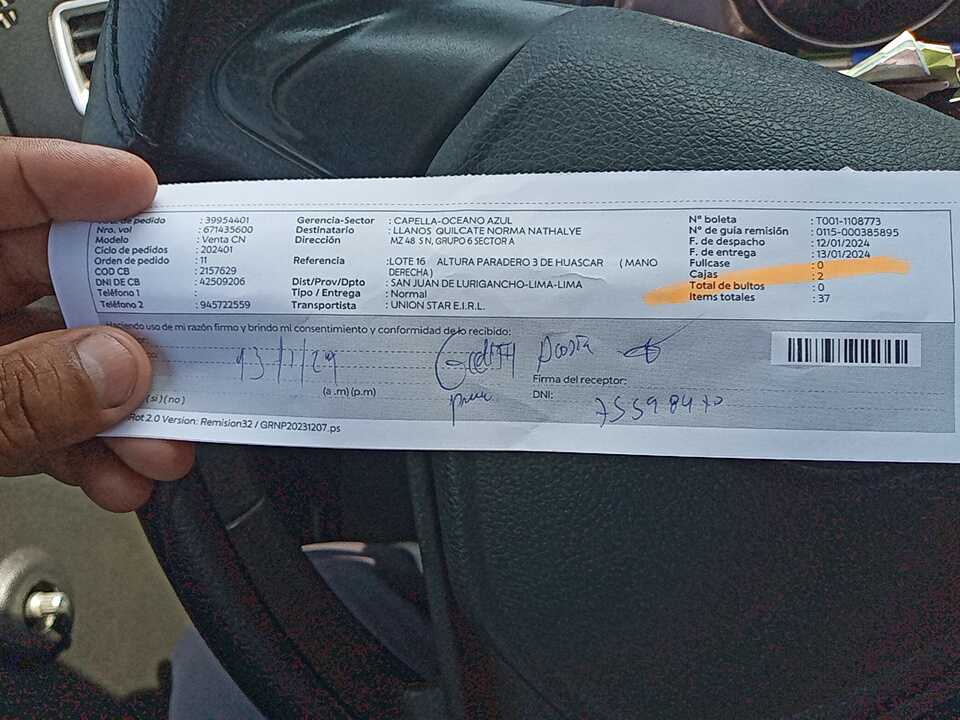 de pedido : 39954401
Nro. vol : 671435600
Modelo : Venta CN
Ciclo de pedidos : 202401
Orden de pedido : 11
COD CB : 2157629
DNI DE CB : 42509206
Teléfono 1 :
Teléfono 2 : 945722559
Gerencia-Sector : CAPELLA-OCEANO AZUL
Destinatario : LLANOS QUILCATE NORMA NATHALYE
Dirección MZ 48 S N, GRUPO 6 SECTOR A
Referencia :LOTE 16 ALTURA PARADERO 3 DE HUASCAR (MANO
DERECHA)
Dist/Prov/Dpto : SAN JUAN DE LURIGANCHO-LIMA-LIMA
Tipo / Entrega : Normal
Transportista : UNION STAR E.I.R.L.
N° boleta : T001-1108773
N° de guía remisión : 0115-000385895
F. de despacho : 12/01/2024
F. de entrega : 13/01/2024
Fullcase : 0
Cajas : 2
Total de bultos : 0
Items totales : 37
Haciendo uso de mi razón firmo y brindo mi consentimiento y conformidad de lo recibido:
13/1/24
Edith Acosta
(a .m) (p.m)
Firma del receptor:
(si) (no)
DNI: 75598470
Rot 2.0 Version: Remision32 / GRNP20231207.ps